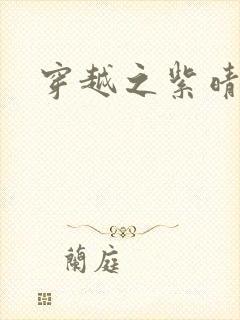 穿越之紫晴
蘭庭